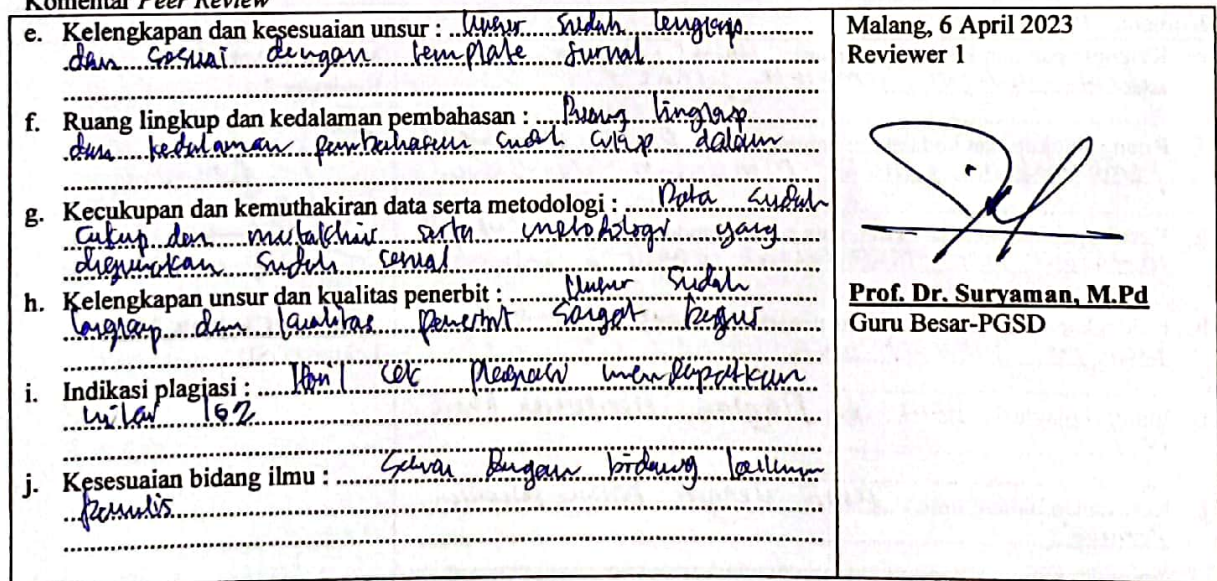 Komentar Peer Review
e. Kelengkapan dan kesesuaian unsur : Unsur sudah lengkap
dan sesuai dengan template Jurnal
f. Ruang lingkup dan kedalaman pembahasan : Ruang lingkup
dan kedalaman pembahasan sudah cukup dalam
g. Kecukupan dan kemuthakiran data serta metodologi : Data sudah
cukup dan mutakhir serta metodologi yang
digunakan sudah sesuai
h. Kelengkapan unsur dan kualitas penerbit : Unsur sudah
lengkap dan kualitas penerbit sangat bagus
i. Indikasi plagiasi : Hasil cek plagiasi mendapatkan
nilai
j. Kesesuaian bidang ilmu : Sesuai dengan bidang
penulis
Malang, 6 April 2023
Reviewer 1
Prof. Dr. Suryaman, M.Pd
Guru Besar-PGSD